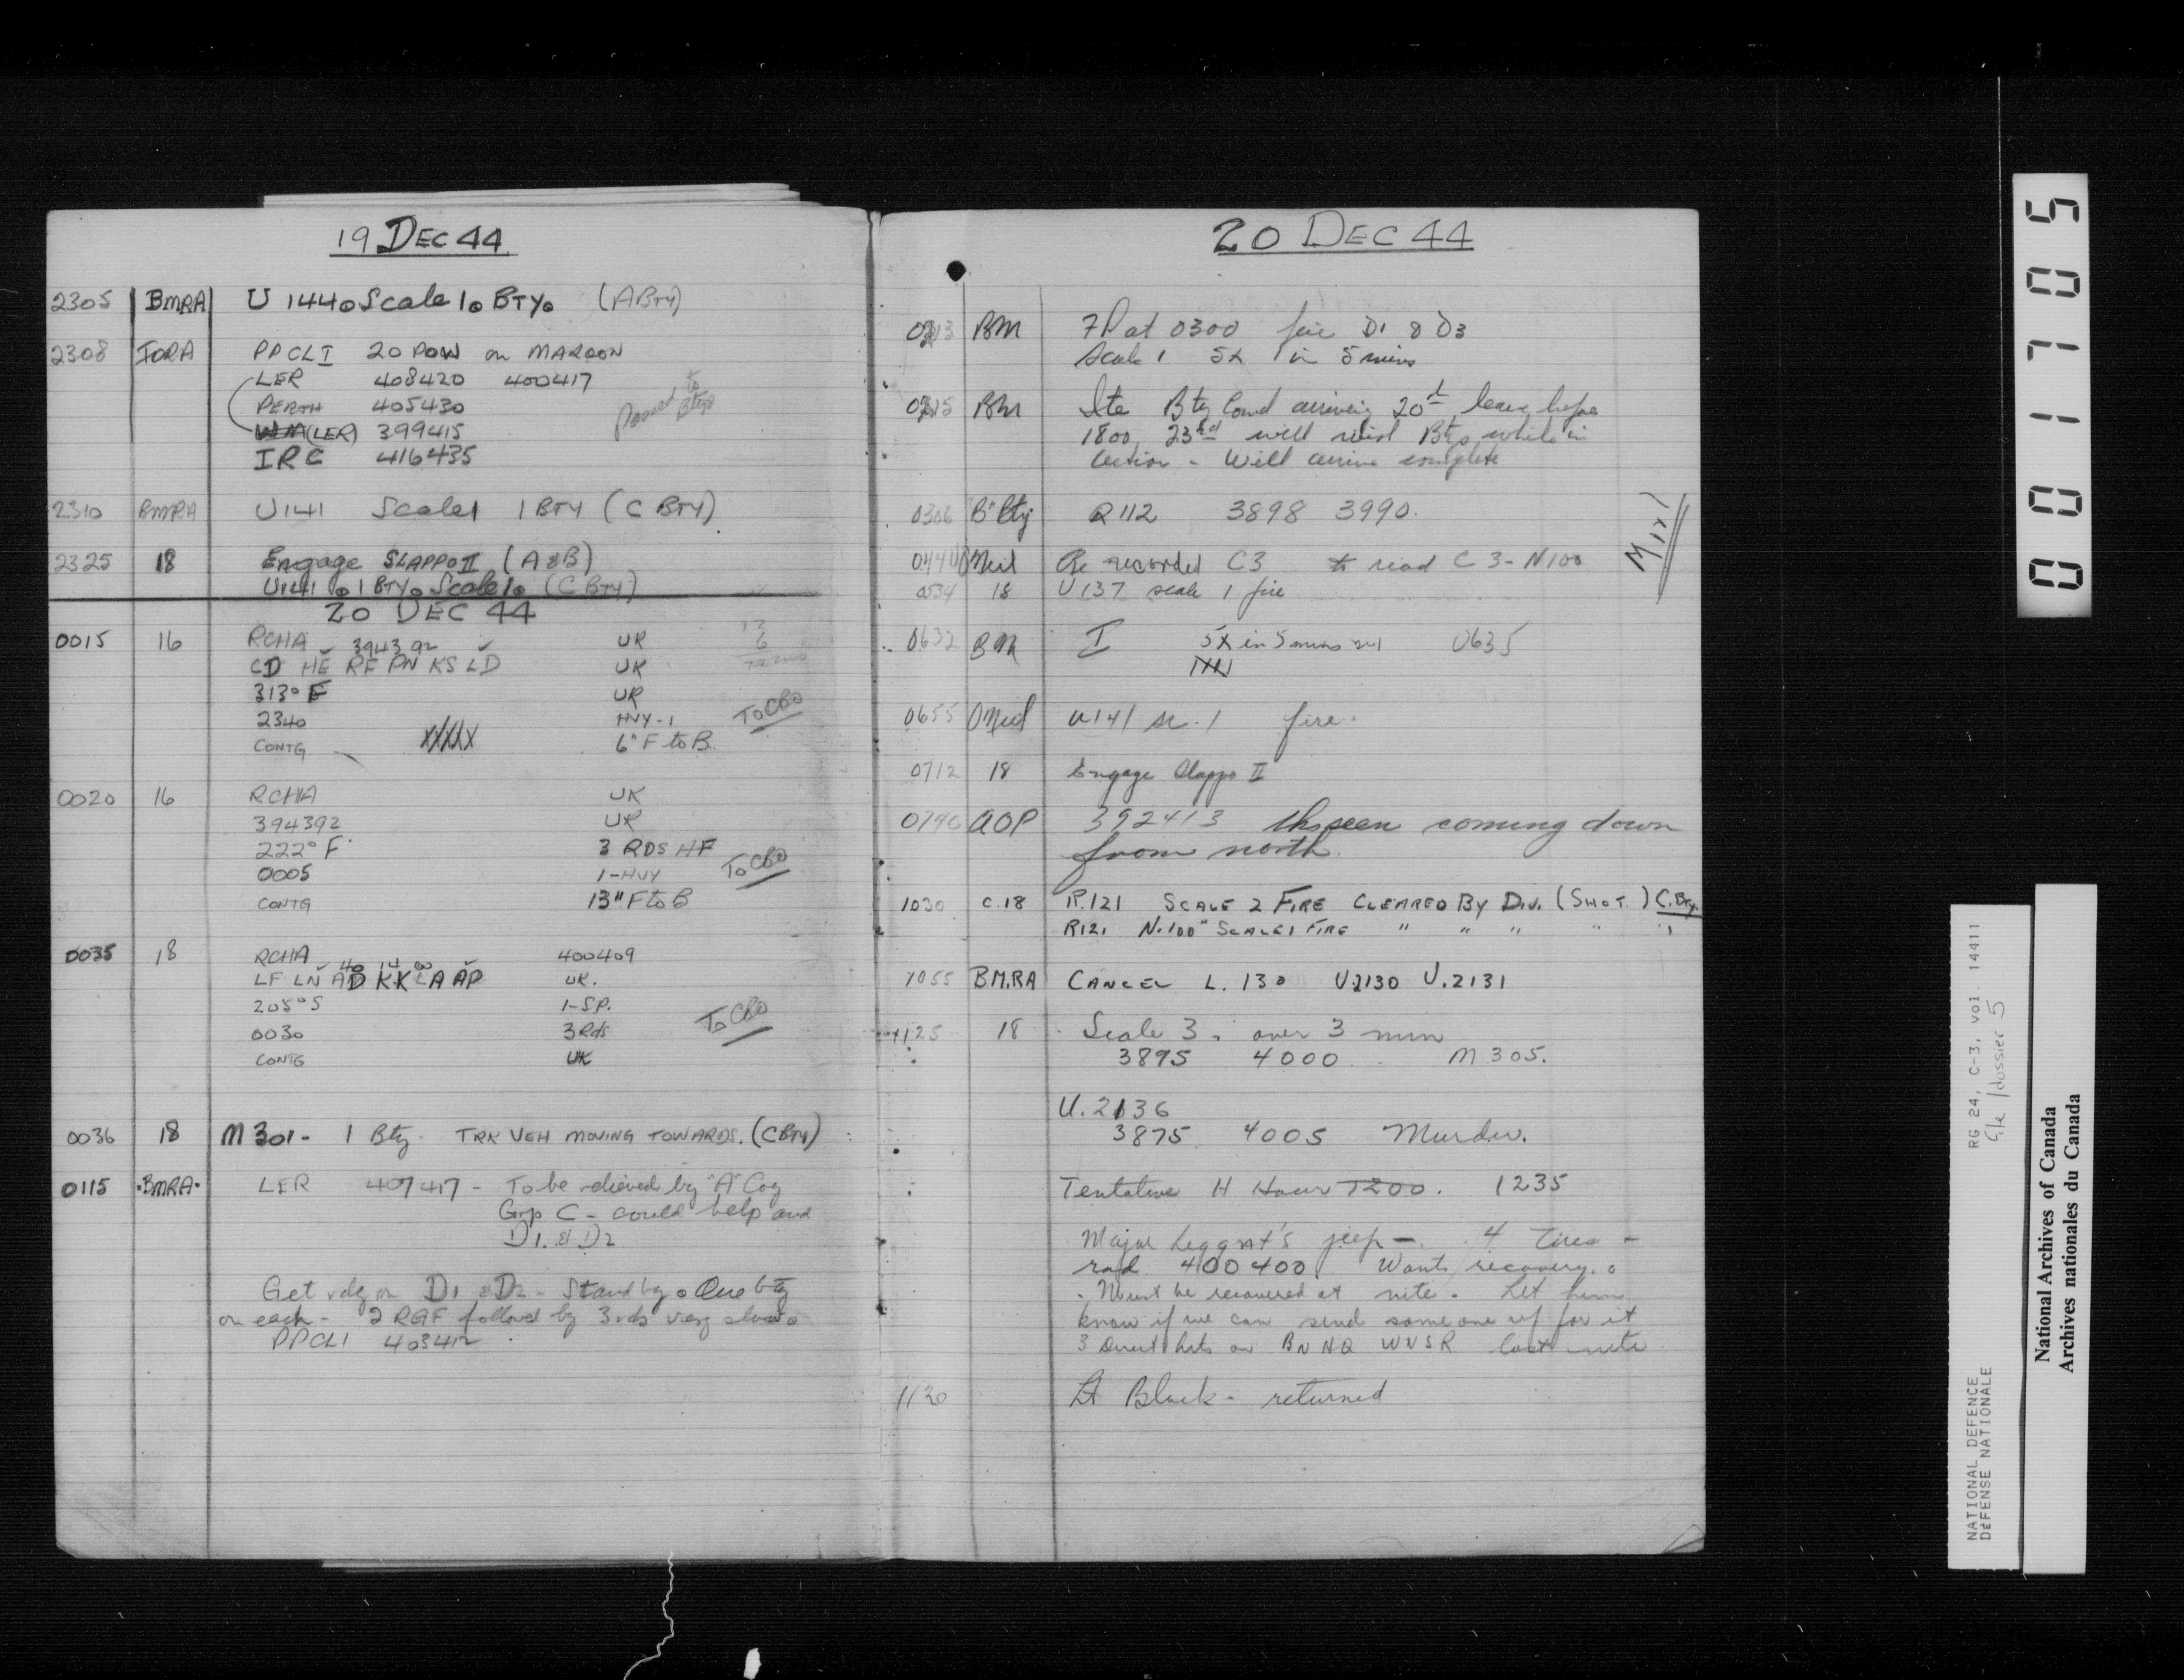 19 DEC 44
2305 BMRA U 144. Scale 1. BTY. (A BTY)
2308 IORA PPCLI 20 POW on MAROON
LER 408420 400417
PERTH 405430 Passed to Btys
(LER) 399415
IRC 416435
2310 BMRA U 141 Scale 1 1 BTY (C BTY)
2325 18 Engage SLAPPO II (A & B)
U141. 1 BTY. Scale 1. (C BTY)
20 DEC 44
0015 16 RCHA 394392 UK
CD HE RF PN KS LD UK
313° F UR
2340 HVY-1 To CBO
CONTG XXXXX 6" F to B.
0020 16 RCHA UK
394392 UR
222° F 3 RDS HF
0005 1-HVY To CBO
CONTG 13" F to B
0035 18 RCHA 400409
LF LN AD KK LA AP UK.
205° S 1-SP.
0030 3 Rds To CBO
CONTG UK
0036 18 M 301 - 1 Bty - TRK VEH MOVING TOWARDS. (C BTY)
0115 BMRA LER 407417 - To be relieved by "A" Coy
Grp C - could help and
D1. & D2
Get rdy on D1 & D2 - Stand by. One bty
on each - 2 RGF followed by 3 rds very slow.
PPCLI 403412
20 DEC 44
BM at 0300 fire D1 & D3
Scale 1 5X in 5 mins
BM Bty Comd arriving 20th leave before
1800, 23rd will Btys while in
action - Will arrive complete
0306 B" Bty R112 3898 3990.
M1x1
Re recorded C3 to read C3-N100
0534 18 U137 scale 1 fire
0632 BM I 5X in 5 mins 0635
0655 ONeil U141 sc. 1 fire.
0712 18 Engage Slappo II
AOP 392413 coming down
from north.
1030 C.18 R.121 SCALE 2 FIRE CLEARED BY DIV. (SHOT.) C. Bty.
R121 N.100" SCALE 1 FIRE " " " " "
1055 B.M.RA CANCEL L. 130 U.2130 U.2131
1125 18 Scale 3. over 3 min
3895 4000. M 305.
U. 2136
3875 4005 Murder.
Tentative H Hour 1200. 1235
Major Leggat's jeep - 4 Tires -
rad 400400. Wants recovery.
Must be recovered at nite. Let him
know if we can send someone up for it
3 Direct hits on BN HQ WNSR last nite
1130 Lt Black - returned
001705
NATIONAL DEFENCE RG 24, C-3, vol. 14411
DÉFENSE NATIONALE file/dossier 5
National Archives of Canada
Archives nationales du Canada